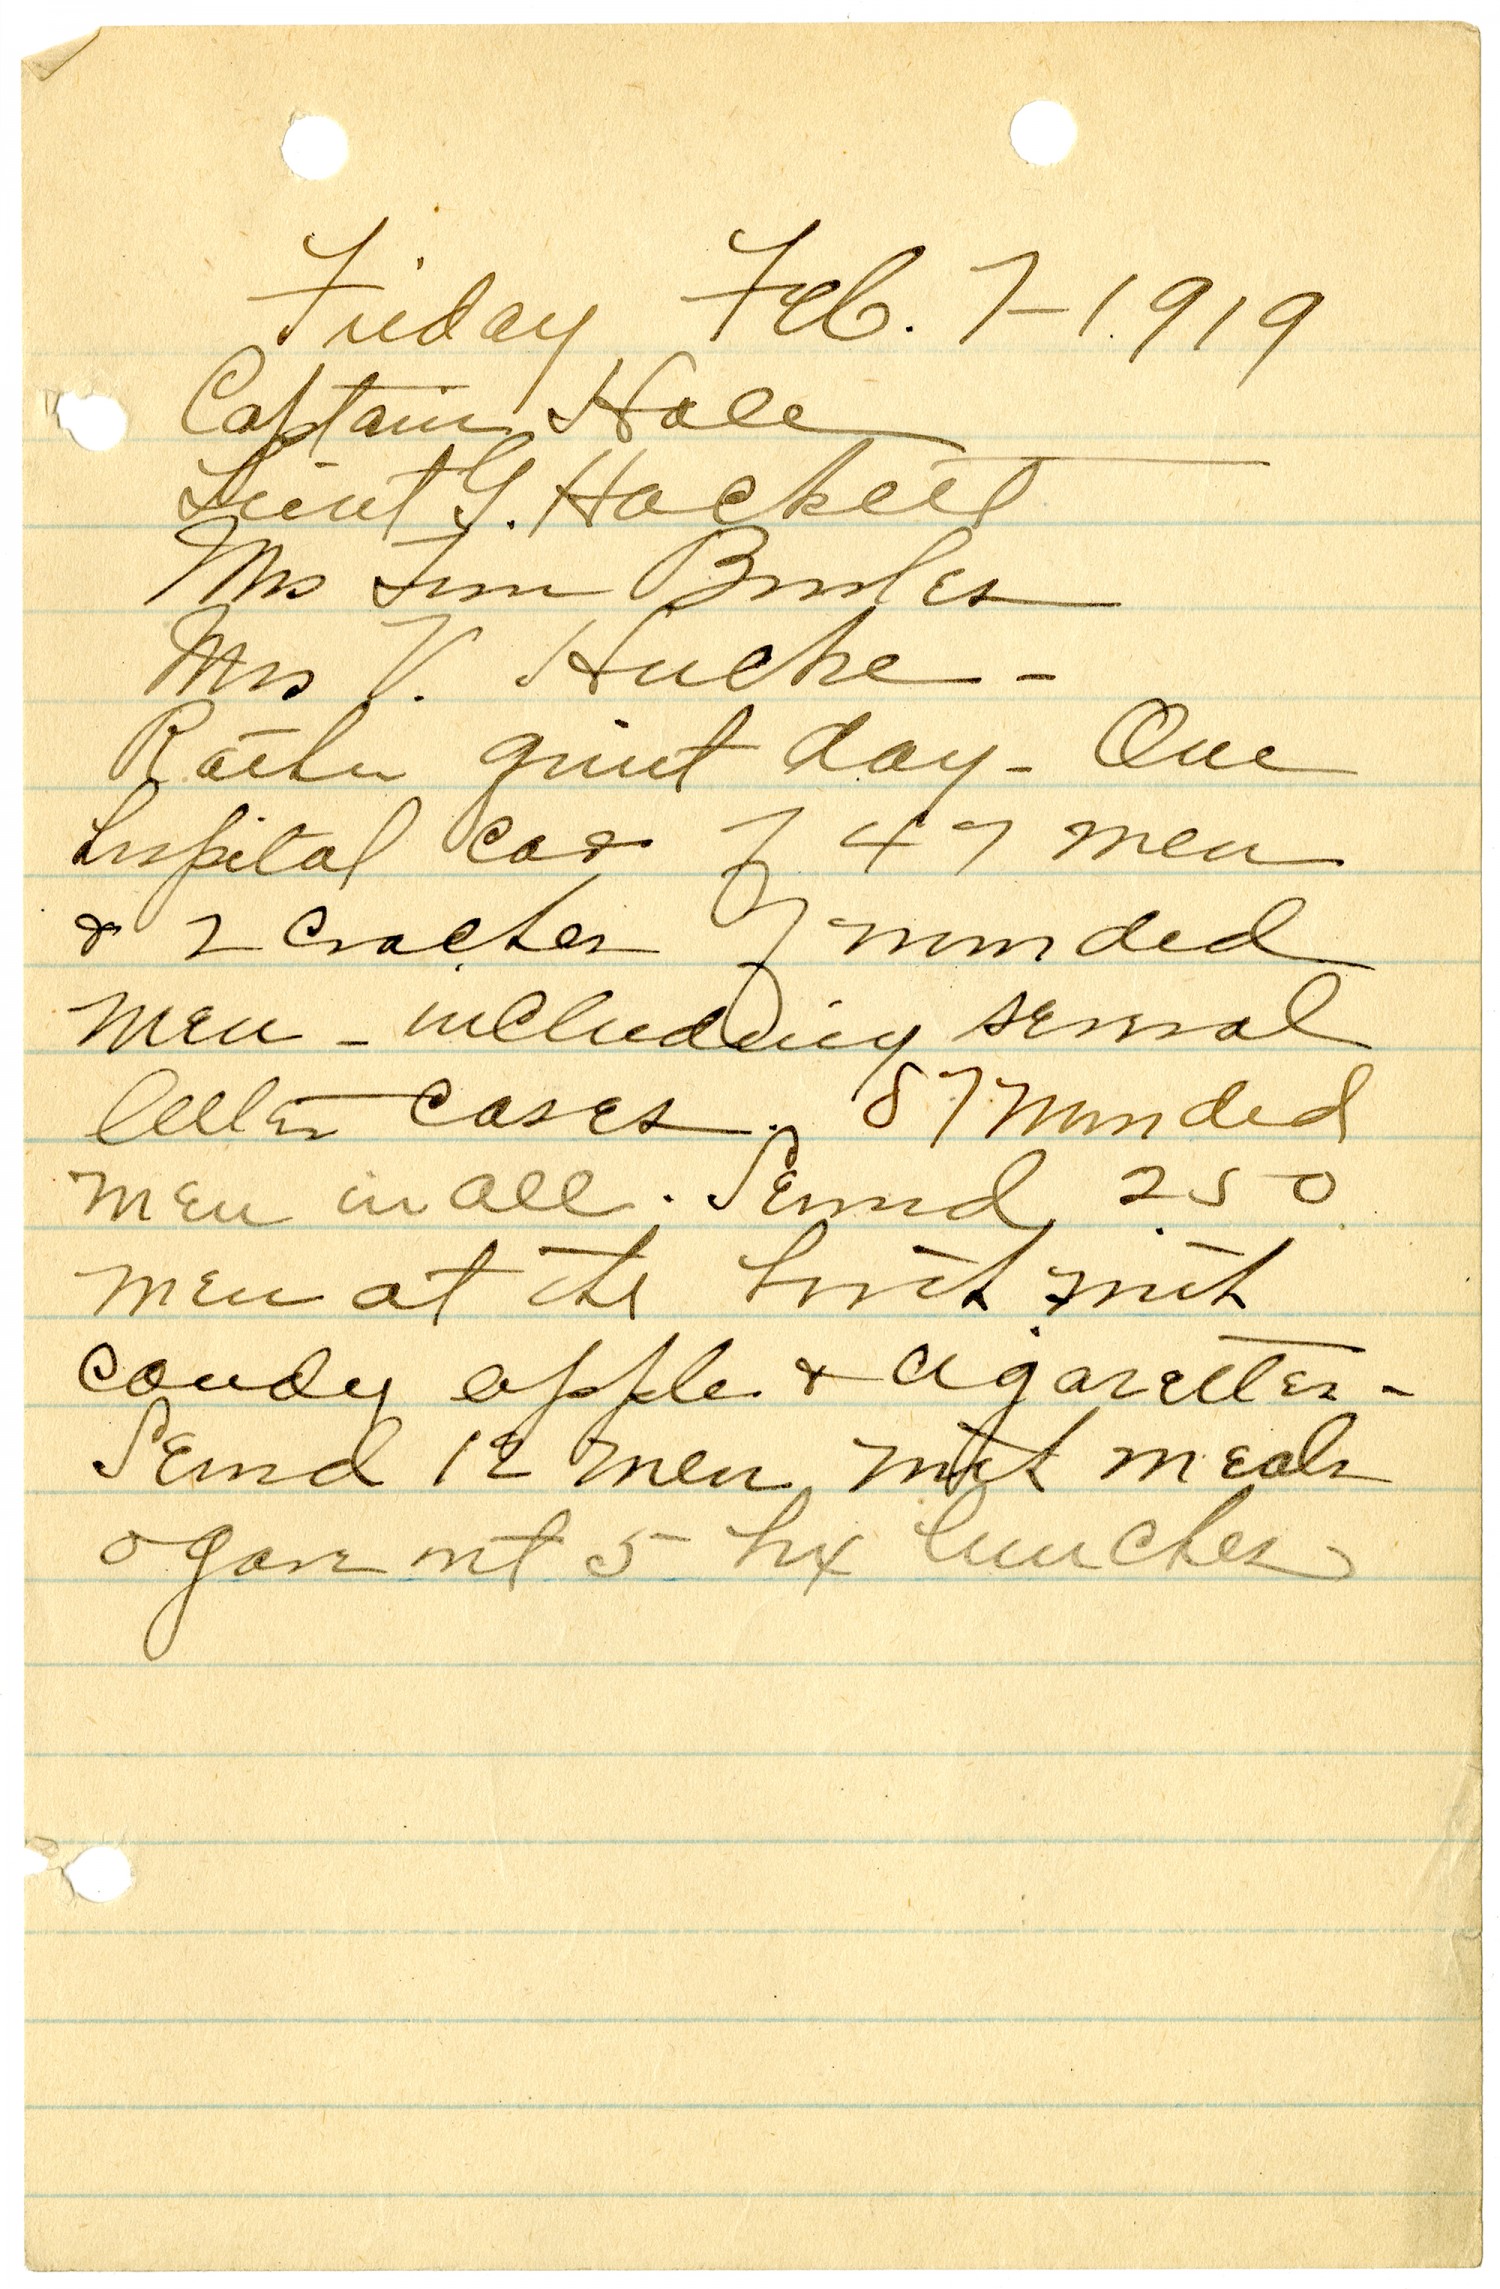 Friday Feb. 7-1919
Captain Hall
Lieut G. Hackett
Mrs Tom Bowles
Mrs V. Hucke -
Rather quiet day - One
hospital car of 47 men
& 2 coaches of wounded
men - including several
litter cases. 87 wounded
men in all. Served 250
men at the booth with
candy apple & cigarettes -
Served 12 men with meals
& gave out 5 box lunches